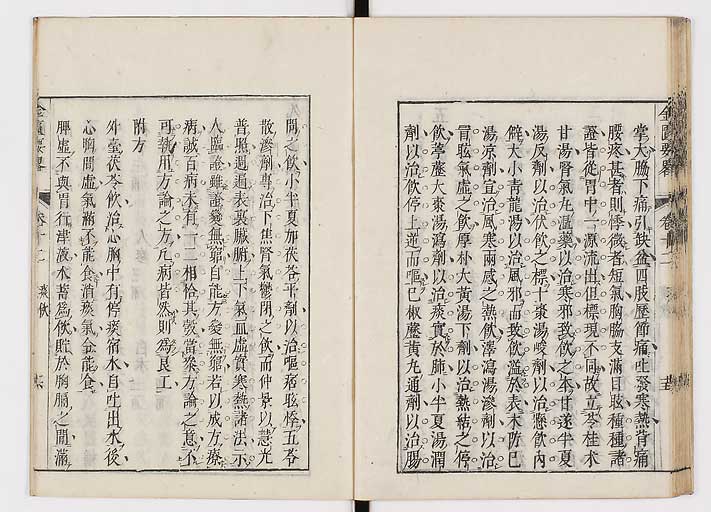 掌大腸下痛引缺盆四肢歷節痛吐發寒熱背痛
腰疼甚者則悸微者短氣胸脇支滿目眩種種諸
證皆從胃中一源流出但標現不同故立苓桂朮
甘湯腎氣丸溫藥以治寒邪致飲之本甘遂半夏
湯反劑以治伏飲之標十棗湯峻劑以治懸飲內
僻大小青龍湯以治風邪而致飲溢於表木防已
湯涼劑宣治風寒兩感之熱飲澤瀉湯滲劑以治
冒眩氣虛之飲厚朴大黃湯下劑以治熱結之停
飲葶藶大棗湯瀉劑以治痰實於肺小半夏湯潤
劑以治飲停上逆而嘔已椒藶黃丸通劑以治腸
間之飲小半夏加茯苓平劑以治嘔痞眩悸五苓
散滲劑專治下焦腎氣鬱閉之飲而仲景以慧光
普照遇遁表裏臟腑上下氣血虛實寒熱諸法示
人臨證雖證變無窮自能方變無窮若以成方療
病誠百病未有一二相恰其效當參方論之意不
可執用方論之方凡病皆然則爲良工
附方
外臺茯苓飲治心胸中有停痰宿水自吐出水後
心胸間虛氣滿不能食消痰氣令能食
脾虛不與胃行津液水蓄爲飲貯於胸膈之間滿
金匱要略
卷十二
痰飲
金匱要略
卷十二